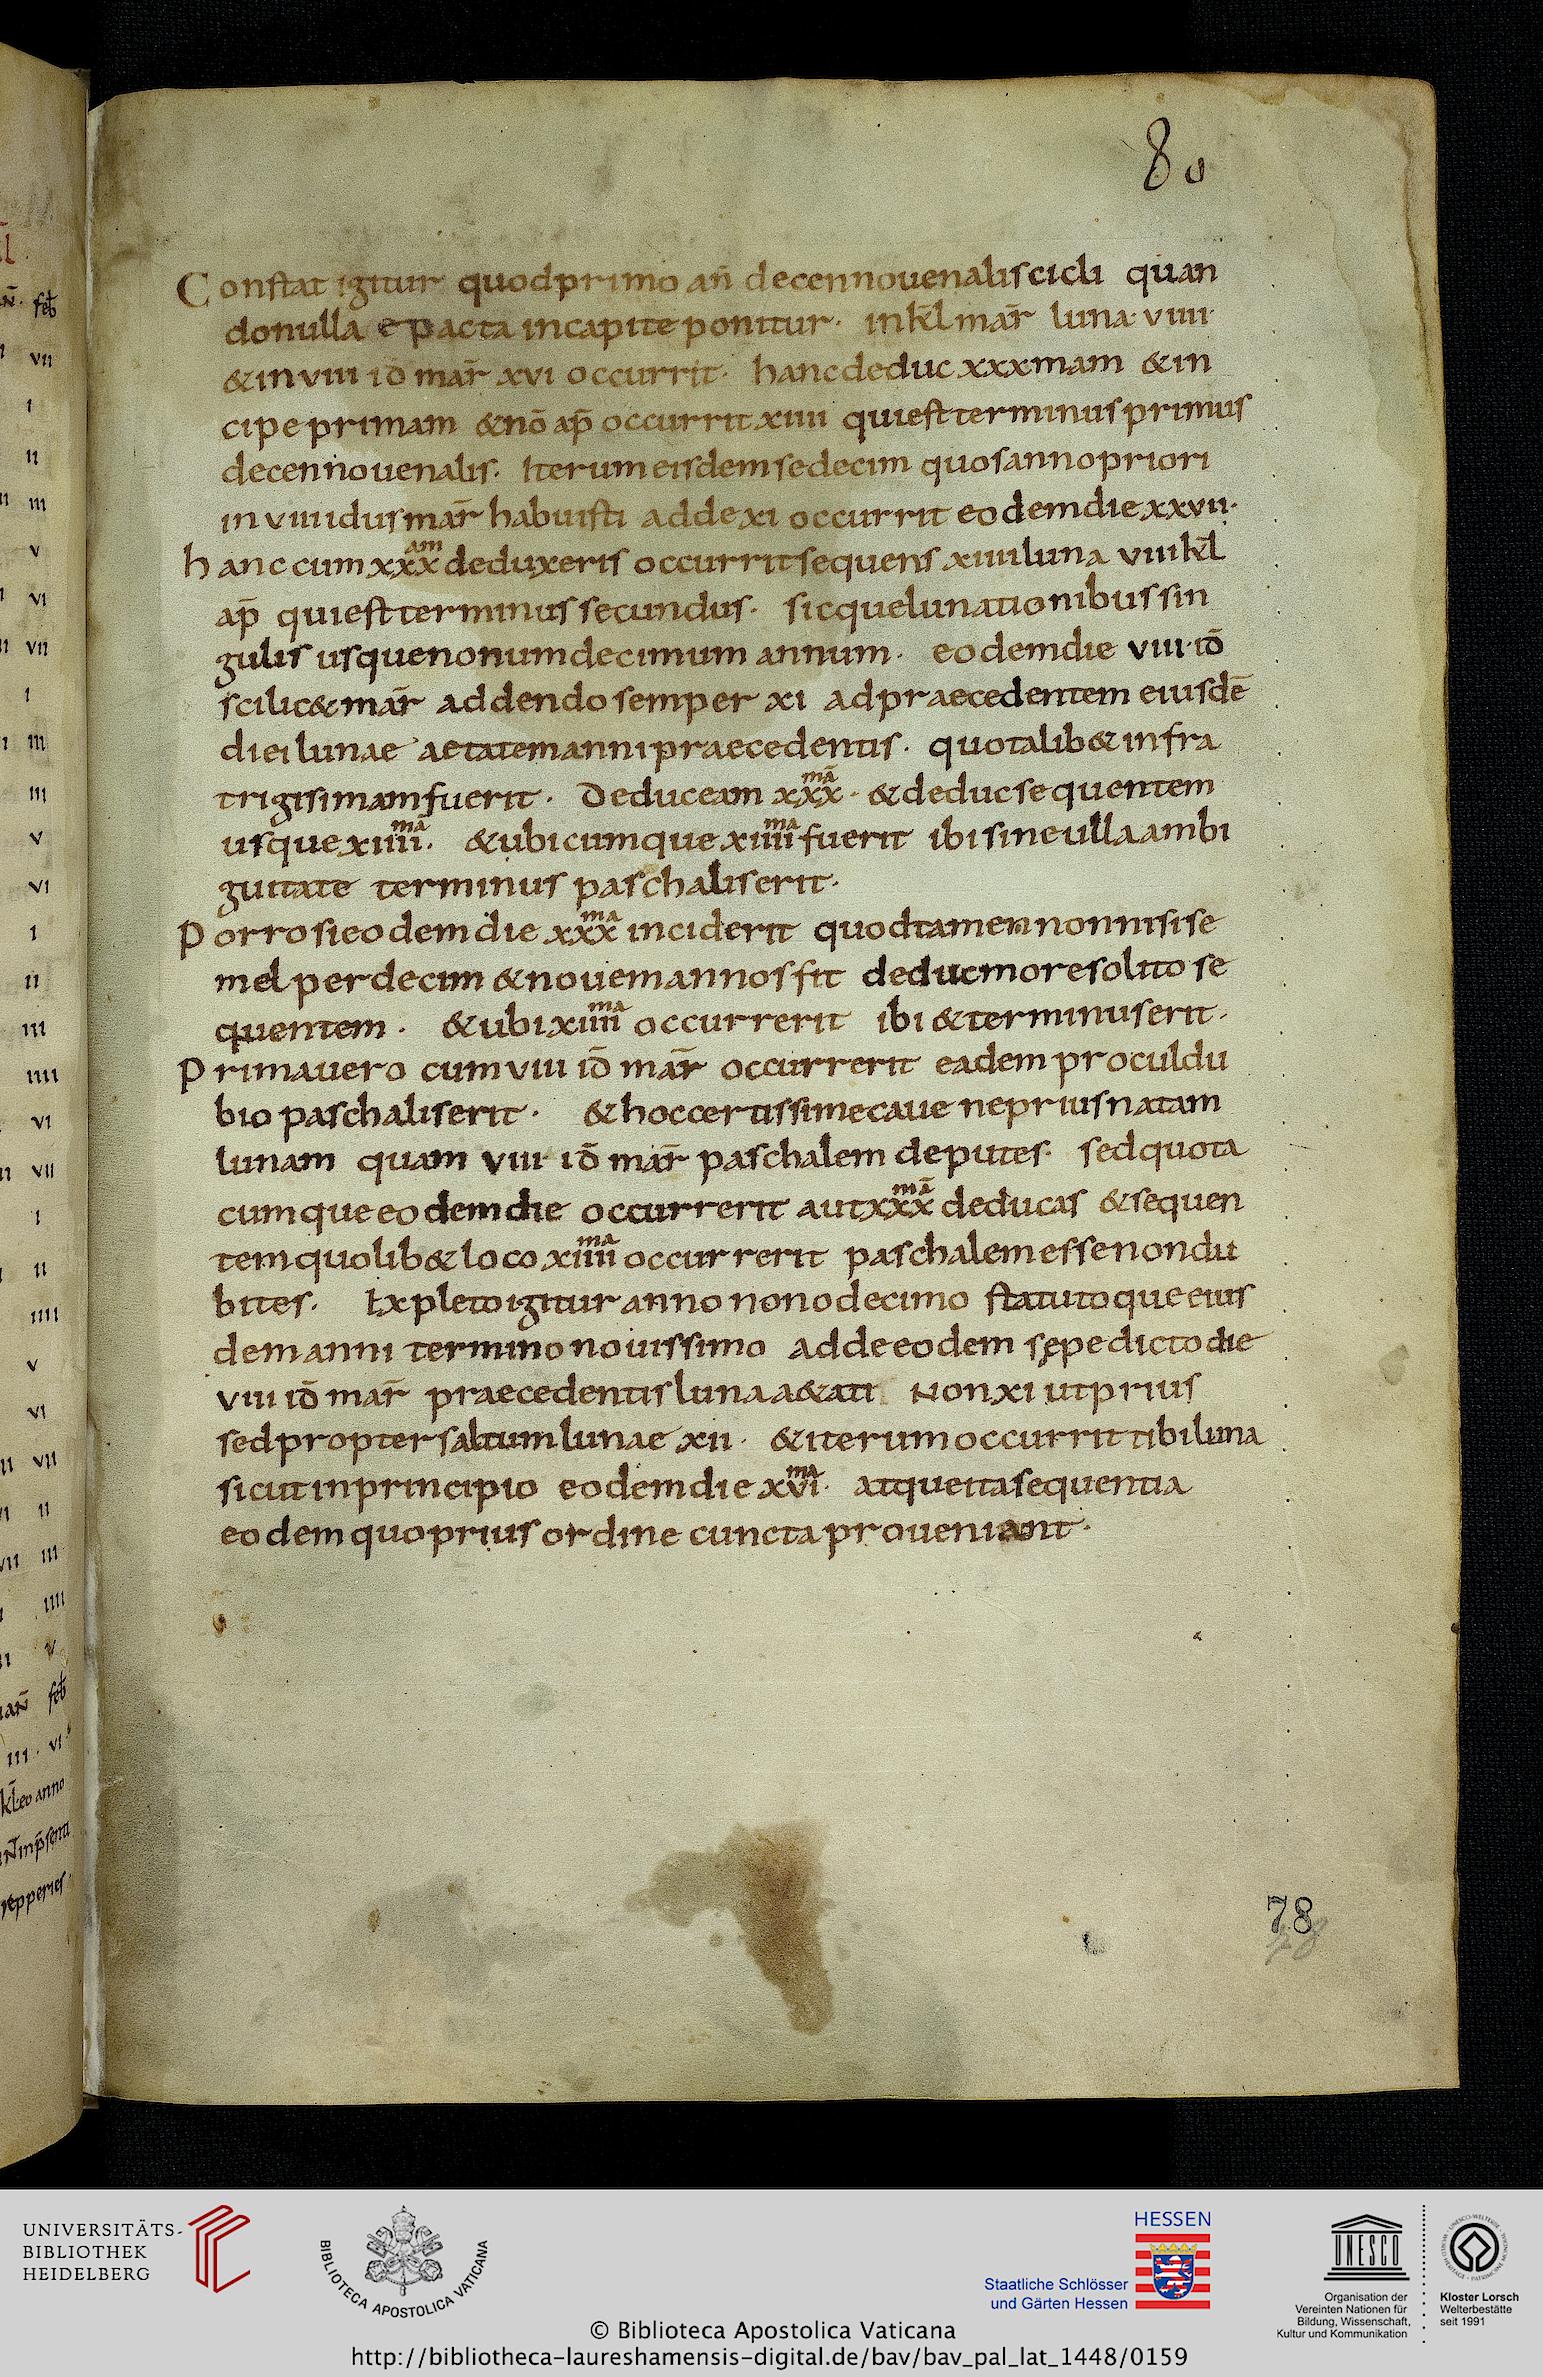 80
Constat igitur quod primo an̄ decennouenalis cicli quan
do nulla epacta in capite ponitur· in kl̄ mar̄ luna· viiii·
& in viii id̄ mar̄ xvi occurrit· hanc deduc xxxmam & in
cipe primam & nō ap̄ occurrit xiiii qui est terminus primus
decennouenalis· Iterum eisdem sedecim quos anno priori
in viii idus mar̄ habuisti adde xi occurrit eodem die xxvii·
hanc cum xxx^am deduxeris occurrit sequens xiiii luna viiii kl̄
ap̄ qui est terminus secundus· sicque lunationibus sin
gulis usque nonum decimum annum· eodem die viii· id̄
scilic& mar̄ addendo semper xi ad praecedentem eiusdē
diei lunae aetatem anni praecedentis· quotalib& infra
trigisimam fuerit· Deduc eam xxx^mā· & deduc sequentem
usque xiiii^mā· & ubicumque xiiii^ma fuerit ibi sine ulla ambi
guitate terminus paschalis erit·
Porro si eodem die xxx^ma inciderit quod tamen non nisi se
mel per decim & nouem annos fit deduc more solito se
quentem· & ubi xiiii^ma occurrerit ibi & terminus erit·
Prima uero cum viii id̄ mar̄ occurrerit eadem procul du
bio paschalis erit· & hoc certissime caue ne prius natam
lunam quam viii id̄ mar̄ paschalem deputes· sed quota
cumque eodem die occurrerit aut xxx^mā deducas & sequen
tem quolib& loco xiiii^ma occurrerit paschalem esse non du
bites· Expleto igitur anno nonodecimo statutoque eius
dem anni termino nouissimo adde eodem sępe dicto die
viii id̄ mar̄ praecedentis luna a&ati Non xi ut prius
sed propter saltum lunae xii· & iterum occurrit tibi luna
sicut in principio eodem die xvi^ma· atque ita sequentia
eodem quo prius ordine cuncta proueniant·
78
feb̄
vii
i
ii
iii
v
vi
vii
i
iii
iii
v
vi
i
ii
iii
iiii
vi
vii
i
ii
iiii
v
vi
vii
ii
iii
iiii
v
feb̄
iii· vi·
UNIVERSITÄTS-
BIBLIOTHEK
HEIDELBERG
BIBLIOTECA APOSTOLICA VATICANA
HESSEN
Staatliche Schlösser
und Gärten Hessen
UNESCO
Organisation der
Vereinten Nationen für
Bildung, Wissenschaft,
Kultur und Kommunikation
Kloster Lorsch
Welterbestätte
seit 1991
© Biblioteca Apostolica Vaticana
http://bibliotheca-laureshamensis-digital.de/bav/bav_pal_lat_1448/0159